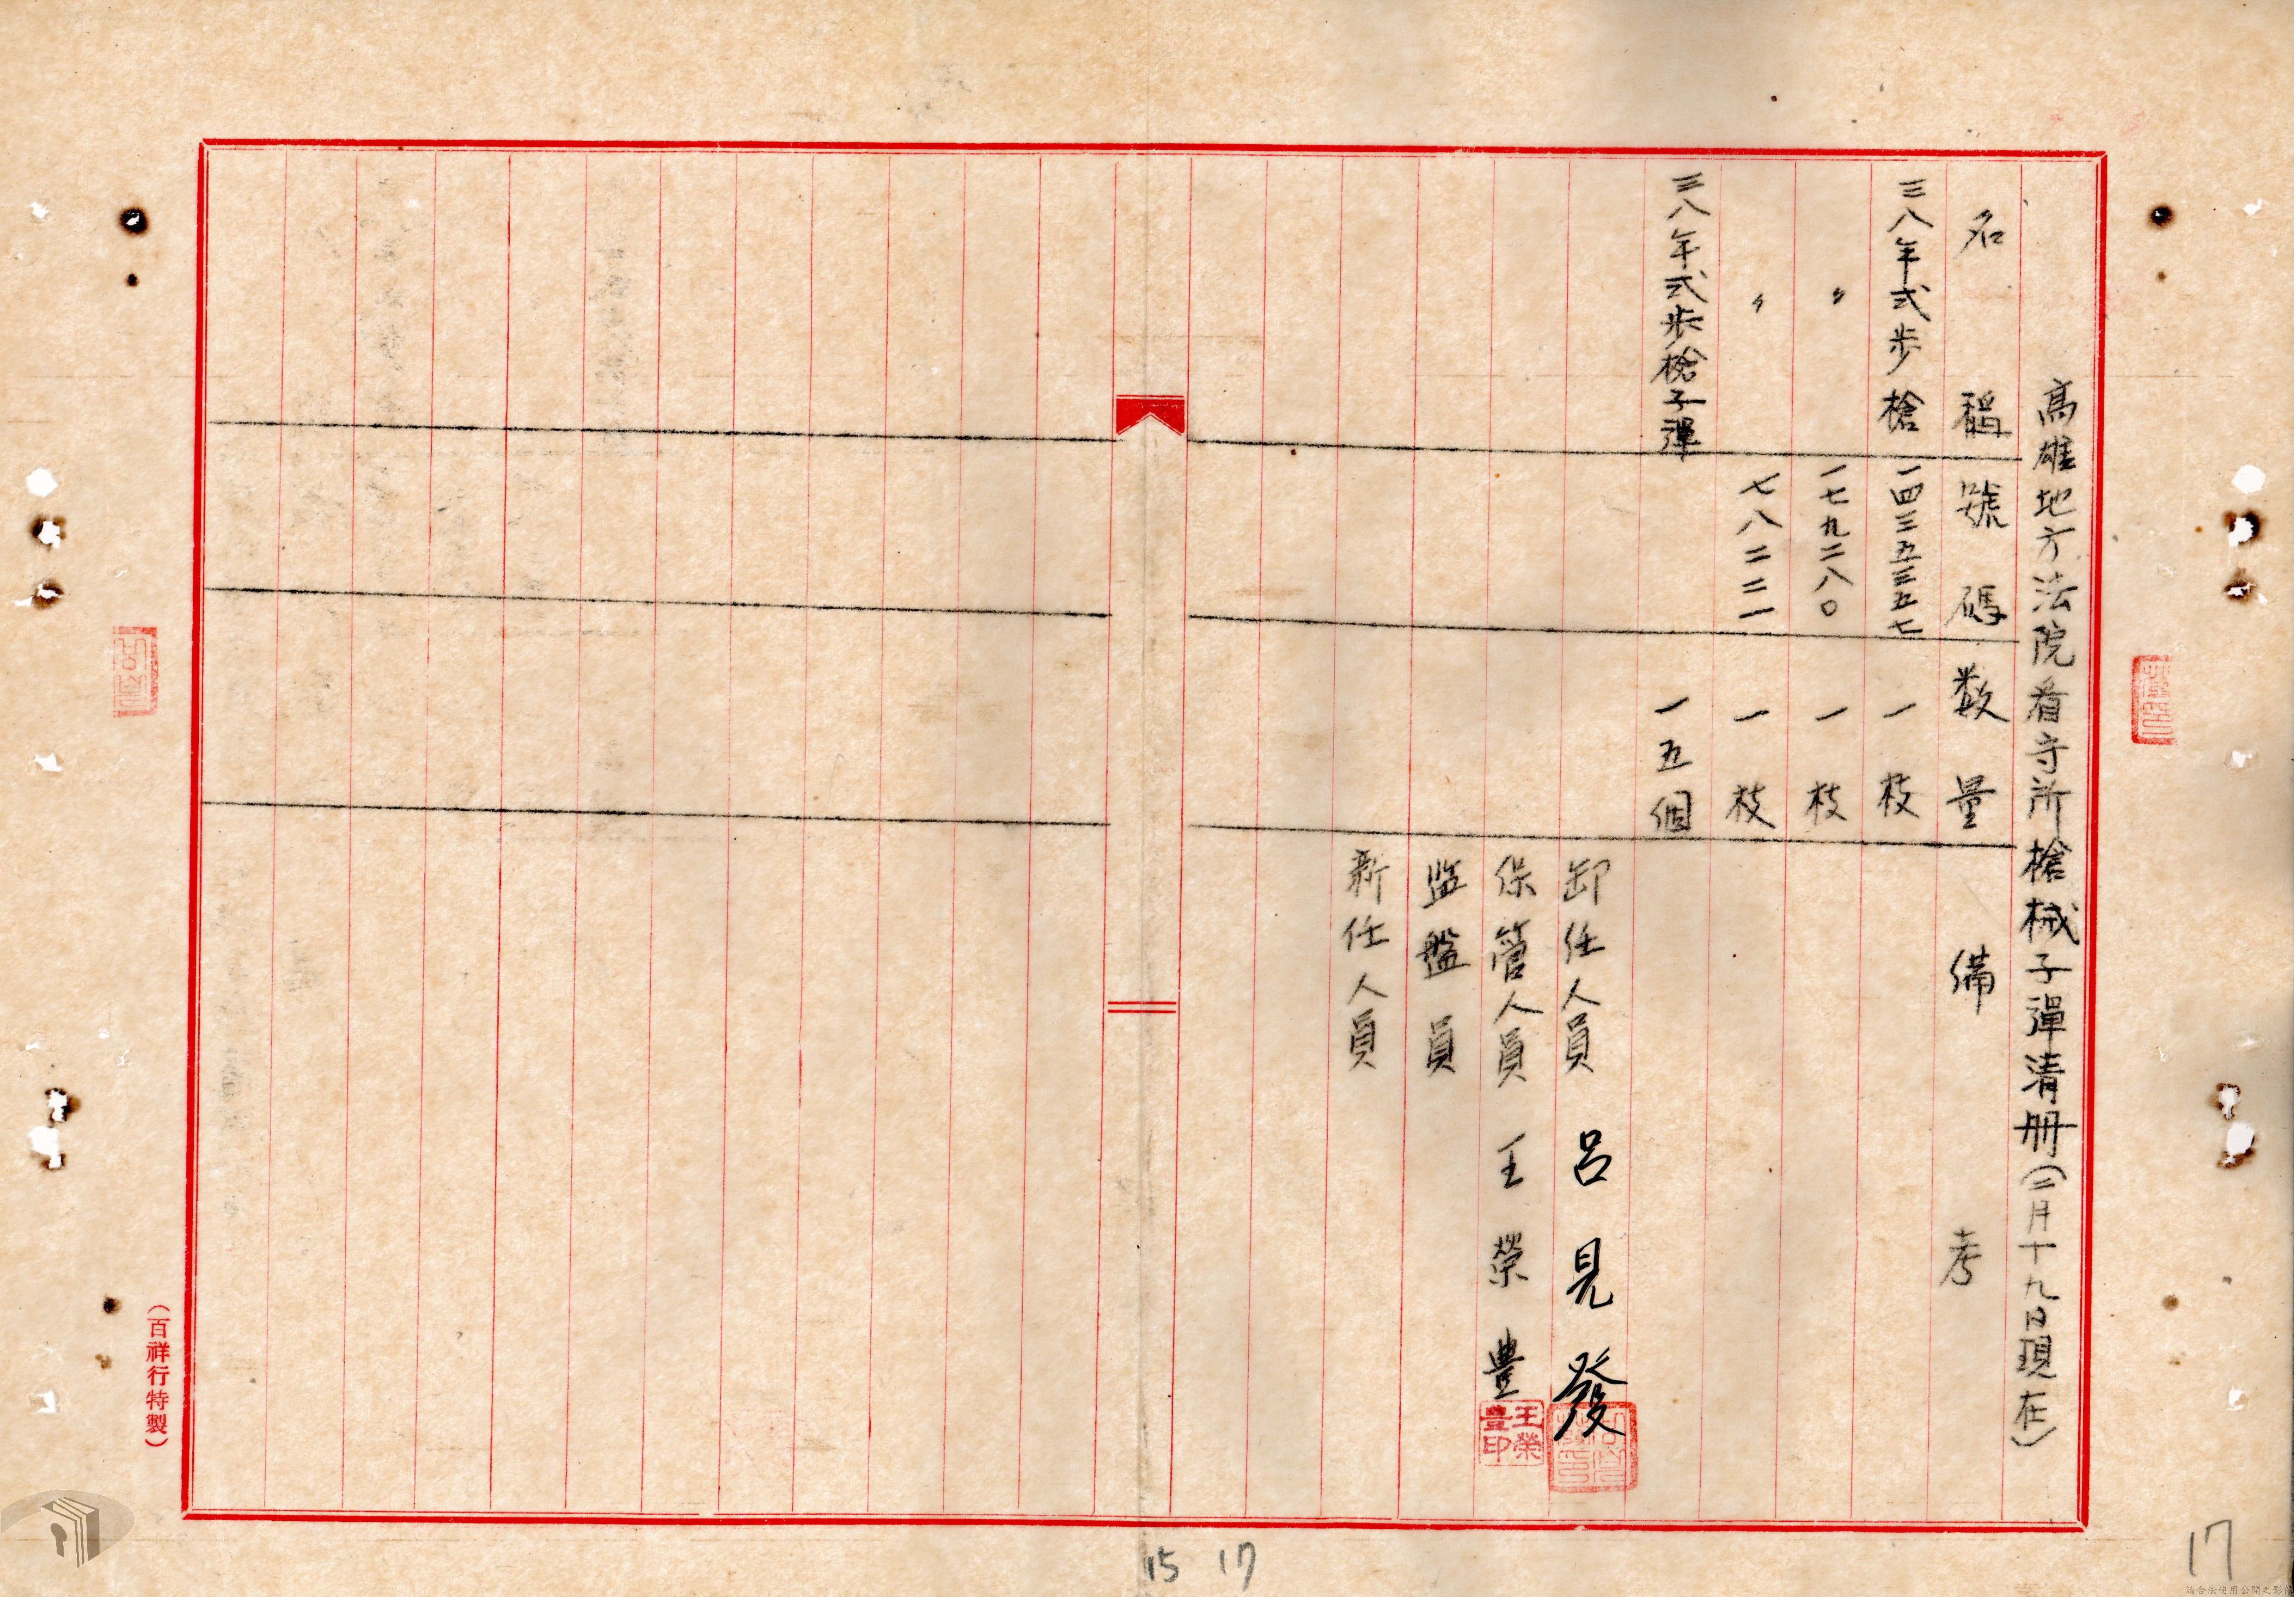 高雄地方法院看守所槍械子彈清册(二月十九日現在)
名稱 號碼 数量 備考
三八年式步槍 一四三五三五七 一枝
〃 一七九二八〇 一枝
〃 七八二二一 一枝
三八年式步槍子彈 一五個
卸任人員 呂見發
保管人員 王榮豊
王榮豊印
监盤員
新任人員
(百祥行特製)
15 17
17
請合法使用公開之影像